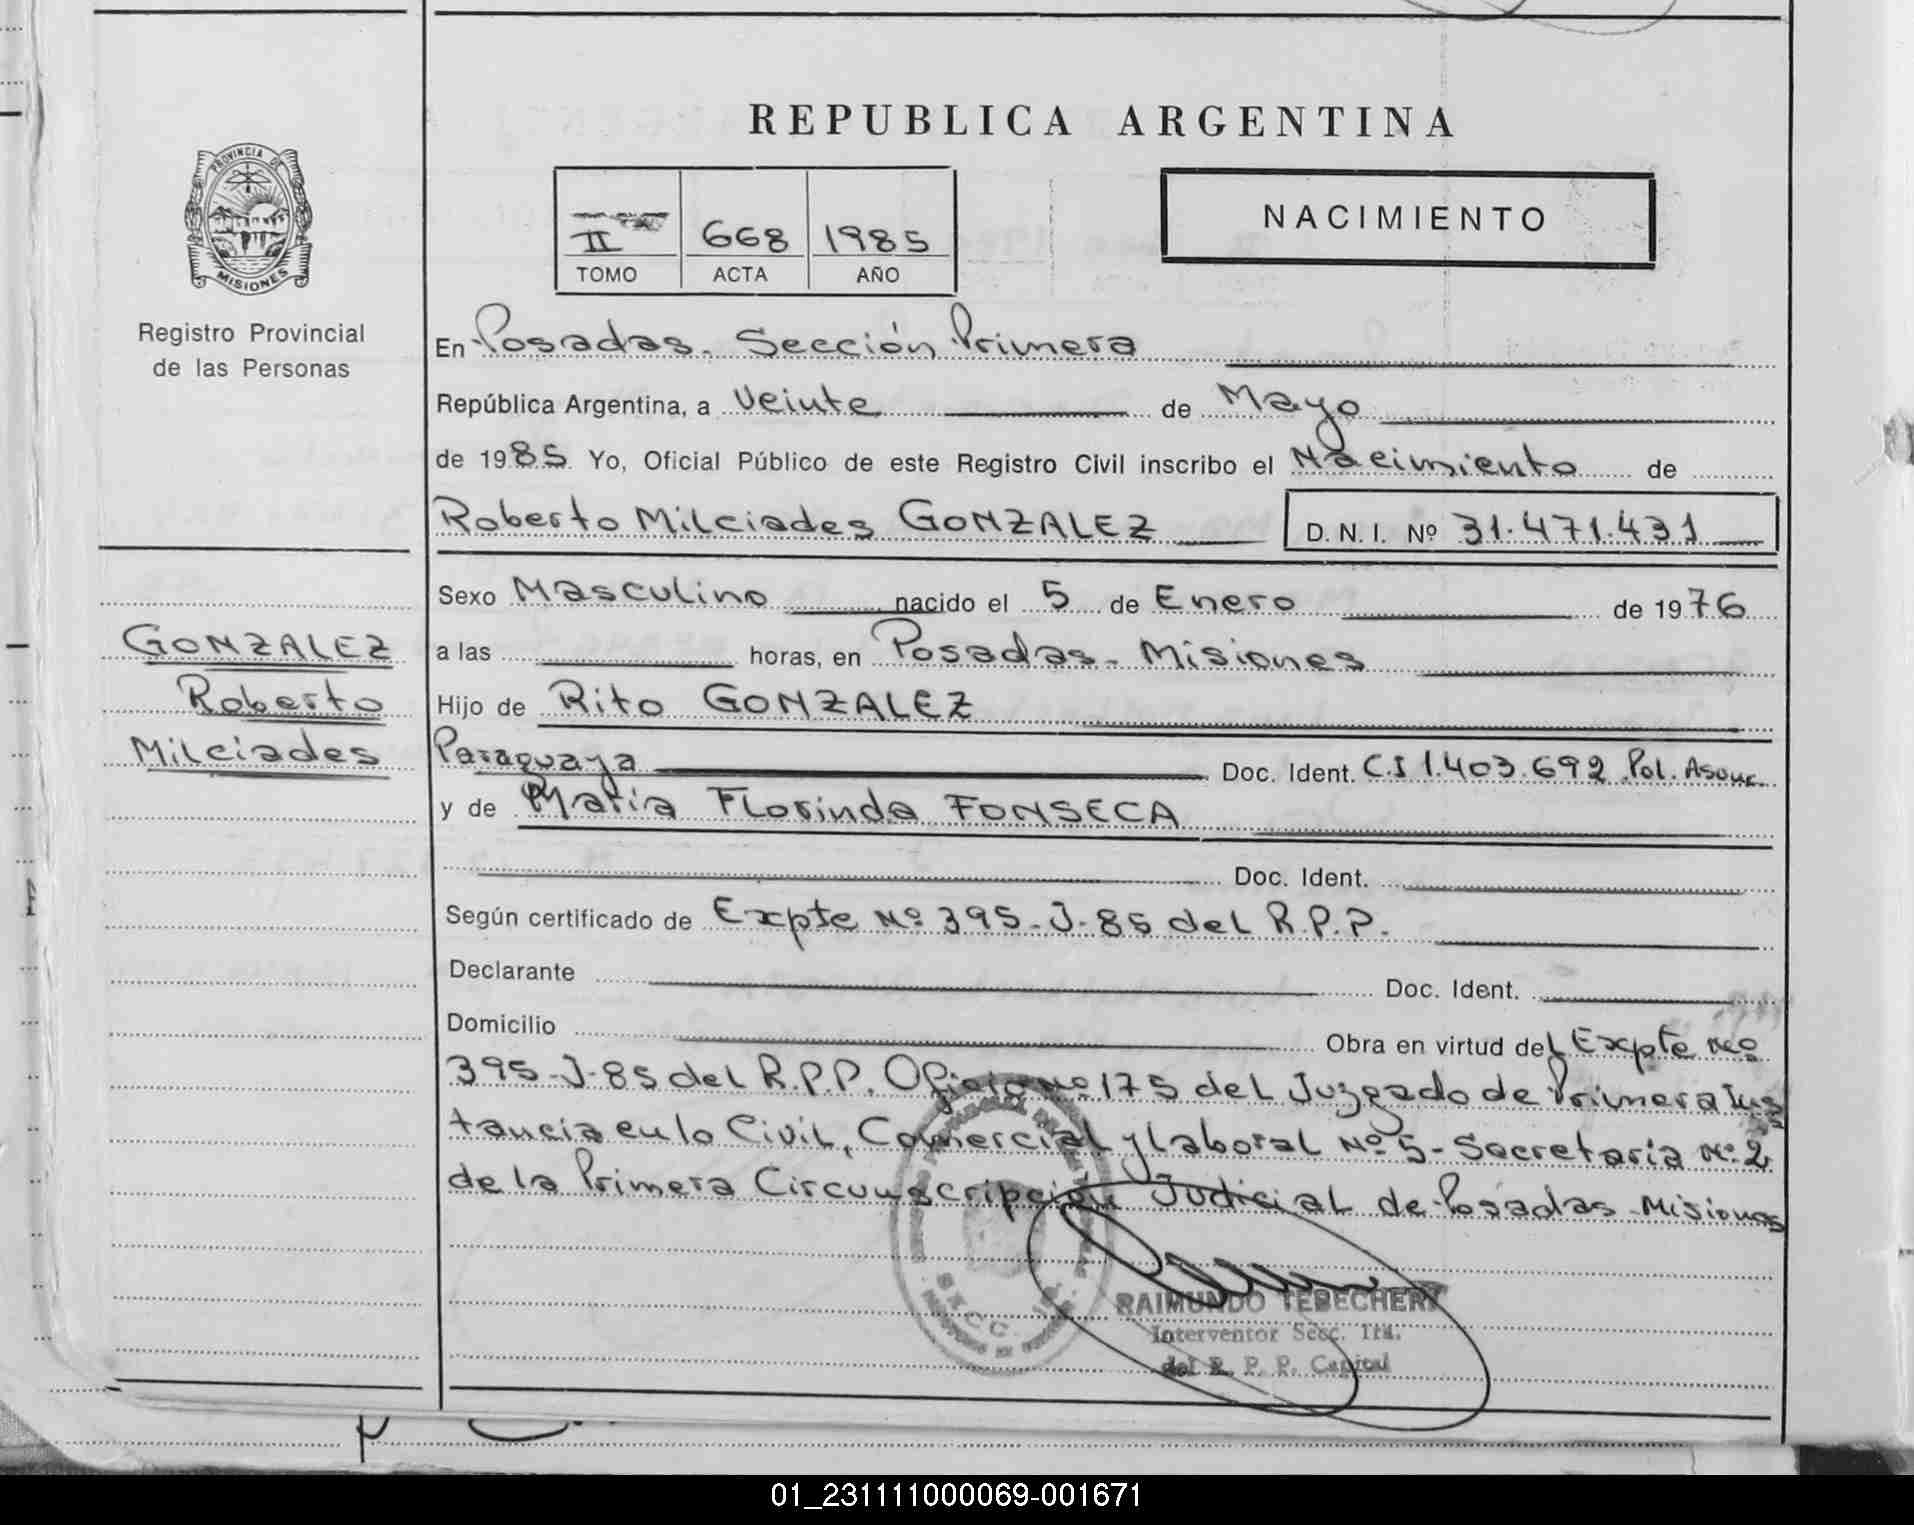 REPUBLICA ARGENTINA
PROVINCIA DE
MISIONES
Registro Provincial
de las Personas
II 668 1985
TOMO ACTA AÑO
NACIMIENTO
En Posadas. Sección Primera
República Argentina, a Veinte de Mayo
de 1985 Yo, Oficial Público de este Registro Civil inscribo el Nacimiento de
Roberto Milciades GONZALEZ D. N. I. Nº 31.471.431
Sexo Masculino nacido el 5 de Enero de 1976
a las horas, en Posadas - Misiones
Hijo de Rito GONZALEZ
Paraguaya Doc. Ident. C.I 1.403.692 Pol. Asunc.
y de Maria Florinda FONSECA
Doc. Ident.
Según certificado de Expte Nº 395-J-85 del R.P.P.
Declarante Doc. Ident.
Domicilio Obra en virtud del Expte Nº
395-J-85 del R.P.P. Oficio Nº 175 del Juzgado de Primera Ins
tancia en lo Civil, Comercial y Laboral Nº 5 - Secretaria Nº 2
de la Primera Circunscripción Judicial de Posadas - Misiones
GONZALEZ
Roberto
Milciades
RAIMUNDO TEBECHERY
Interventor Secc. 1ra.
del R. P. P. Capital
01_231111000069-001671